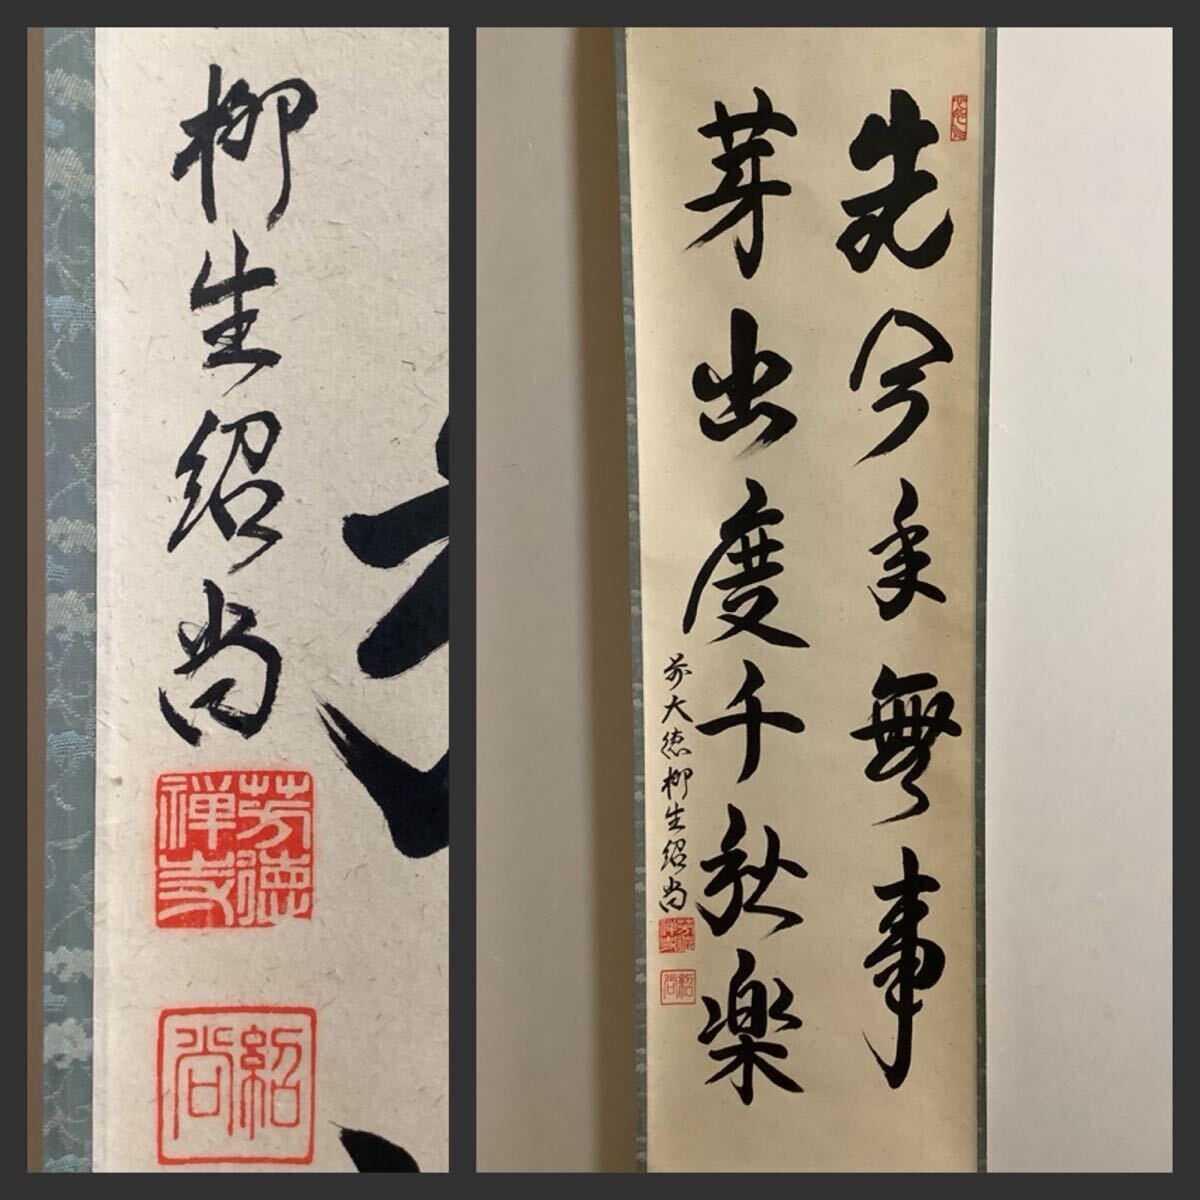 柳生紹尚
芳徳
禅寺
紹尚
先今年無事
芽出度千秋楽
前大徳柳生紹尚
芳徳
禅寺
紹尚